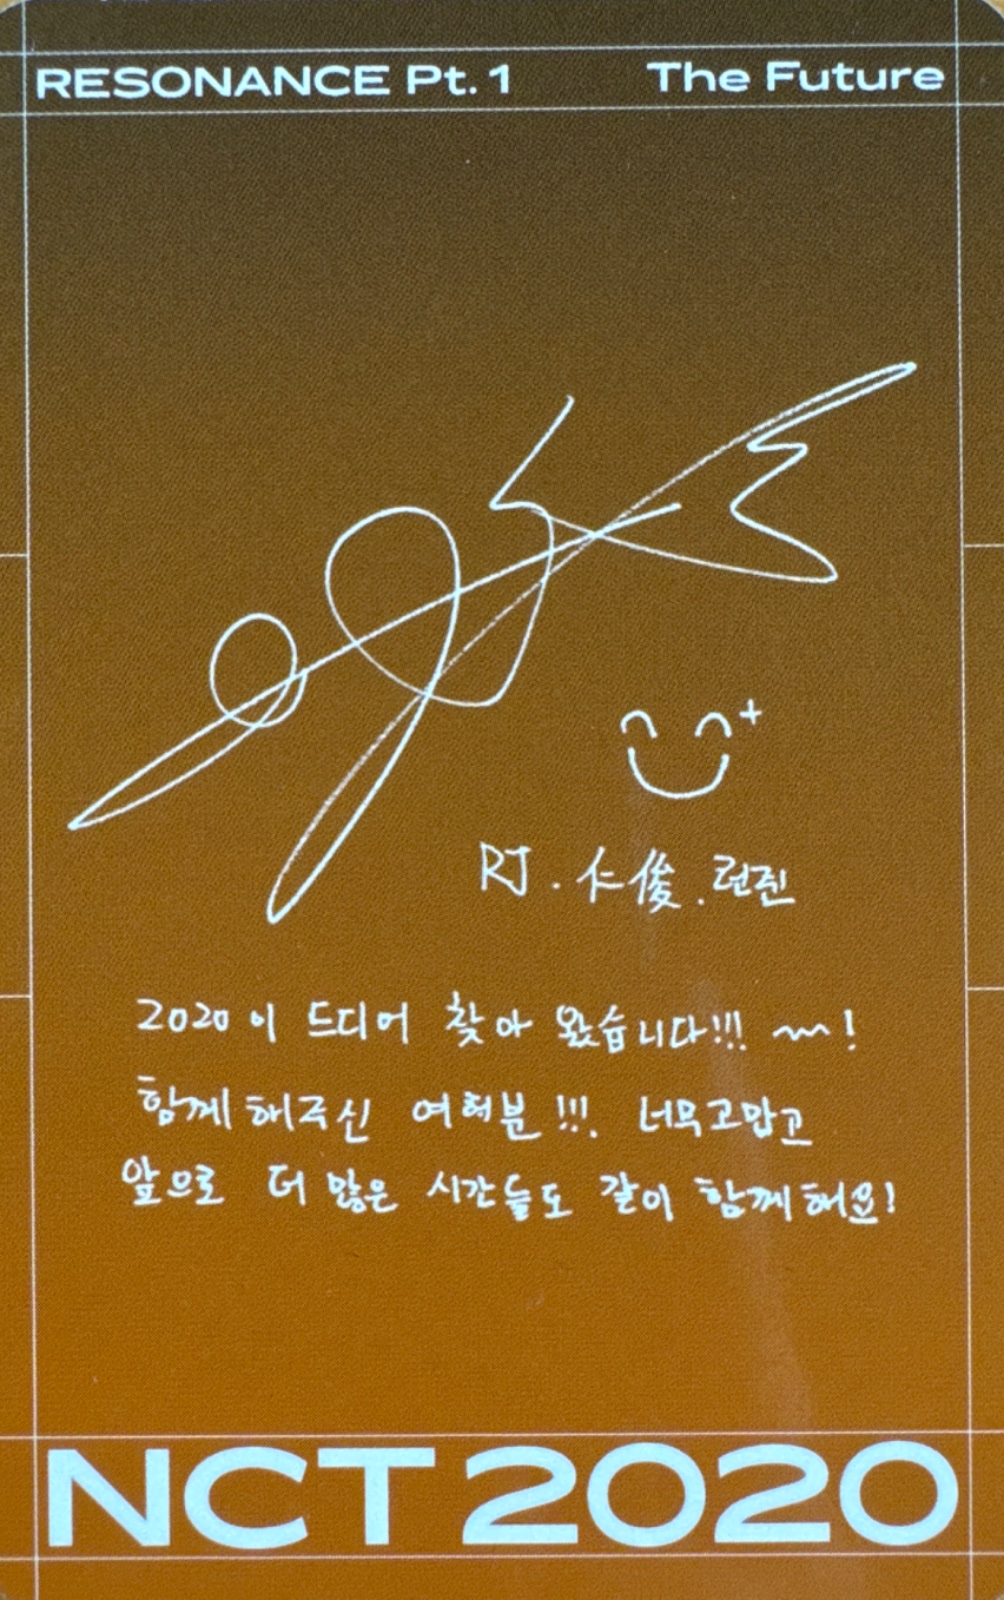 RESONANCE Pt. 1 The Future
RJ . 仁俊 . 런쥔
2020이 드디어 찾아 왔습니다!!! ~~!
함께 해주신 여러분!!! 너무고맙고
앞으로 더 많은 시간들도 같이 함께해요!
NCT 2020